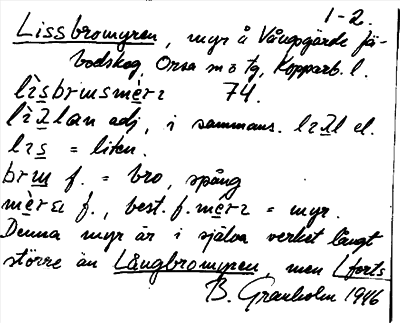 1-2.
Lissbromyren, myr å Vångsgärde fä-
bodskog, Orsa sn o tg, Kopparb. l.
lìsbrɯsmèrɪ 74.
lìƛlan adj, i sammans. lɪƛl el.
lɪs = liten.
brɯ f. = bro, spång
mèrɛɪ f., best. f. mèrɪ = myr.
Denna myr är i själva verket långt
större än Långbromyren, men (forts
B. Granholm 1946